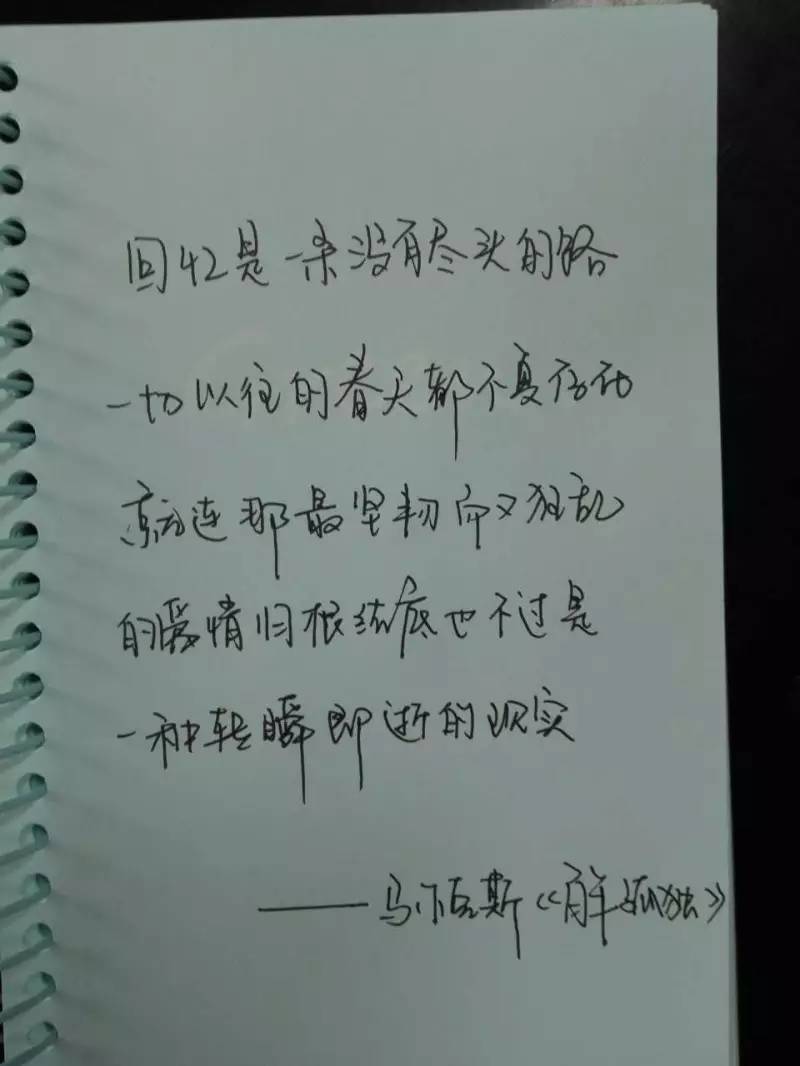 回忆是一条没有尽头的路
一切以往的春天都不复存在
就连那最坚韧而又狂乱
的爱情归根结底也不过是
一种转瞬即逝的现实
——马尔克斯《解孤独》